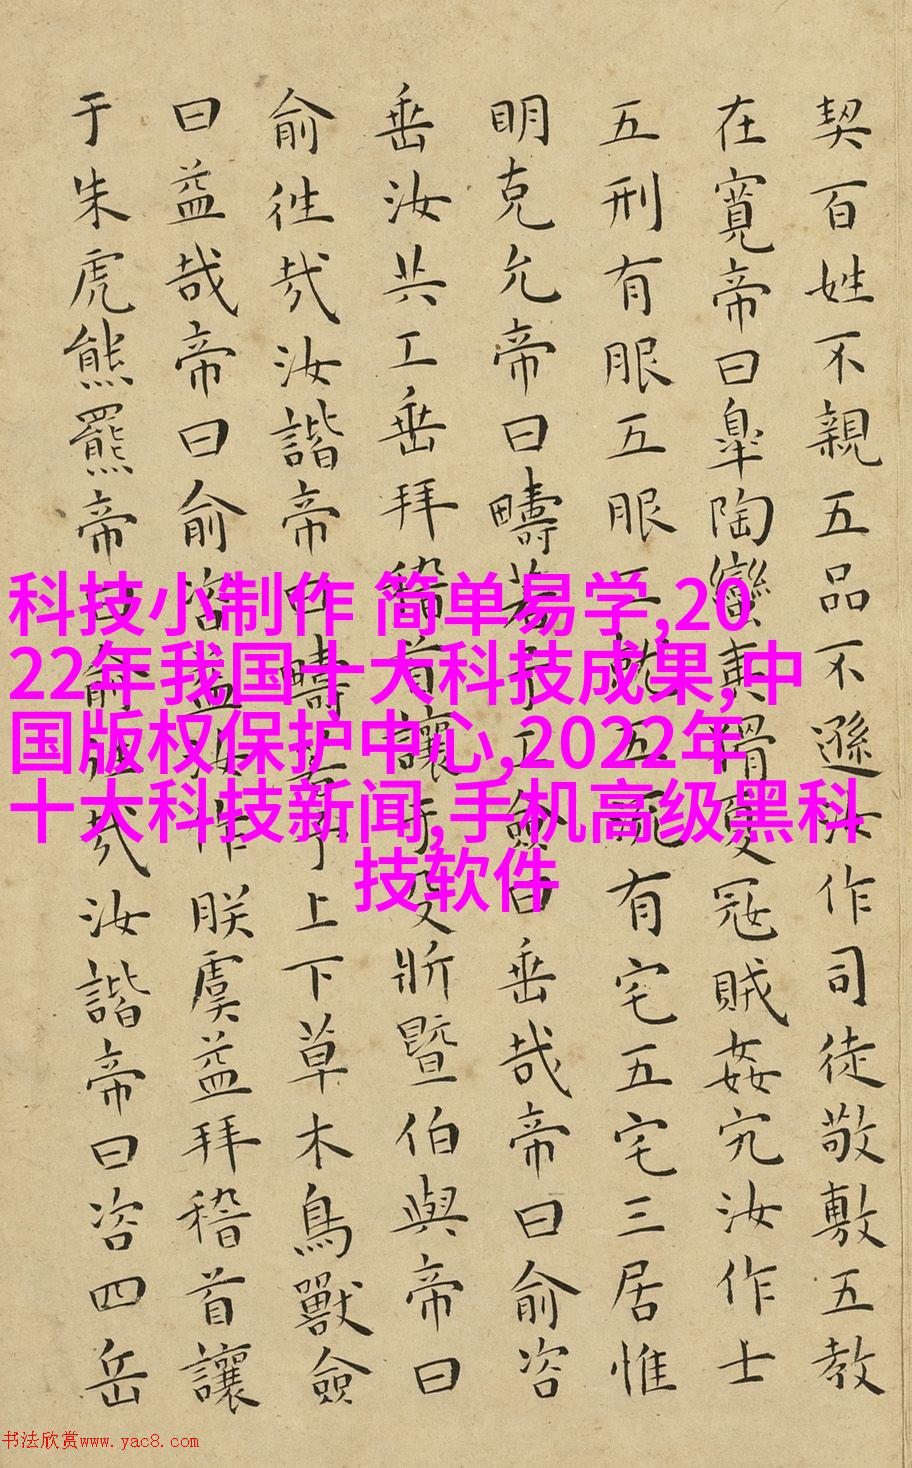 契百姓不親五品不遜汝作司徒敬敷五教
在寬帝曰皐陶蠻夷猾夏寇賊姦宄汝作士
五刑有服五服三就五流有宅五宅三居惟
明克允帝曰疇若予工僉曰垂哉帝曰俞咨
垂汝共工垂拜稽首讓于殳斨暨伯與帝曰
俞往哉汝諧帝曰疇若予上下草木鳥獸僉
曰益哉帝曰俞咨益汝作朕虞益拜稽首讓
于朱虎熊羆帝曰俞往哉汝諧帝曰咨四岳
科技小制作 简单易学,20
22年我国十大科技成果,中
国版权保护中心,2022年
十大科技新闻,手机高级黑科
技软件
书法欣赏www.yac8.com